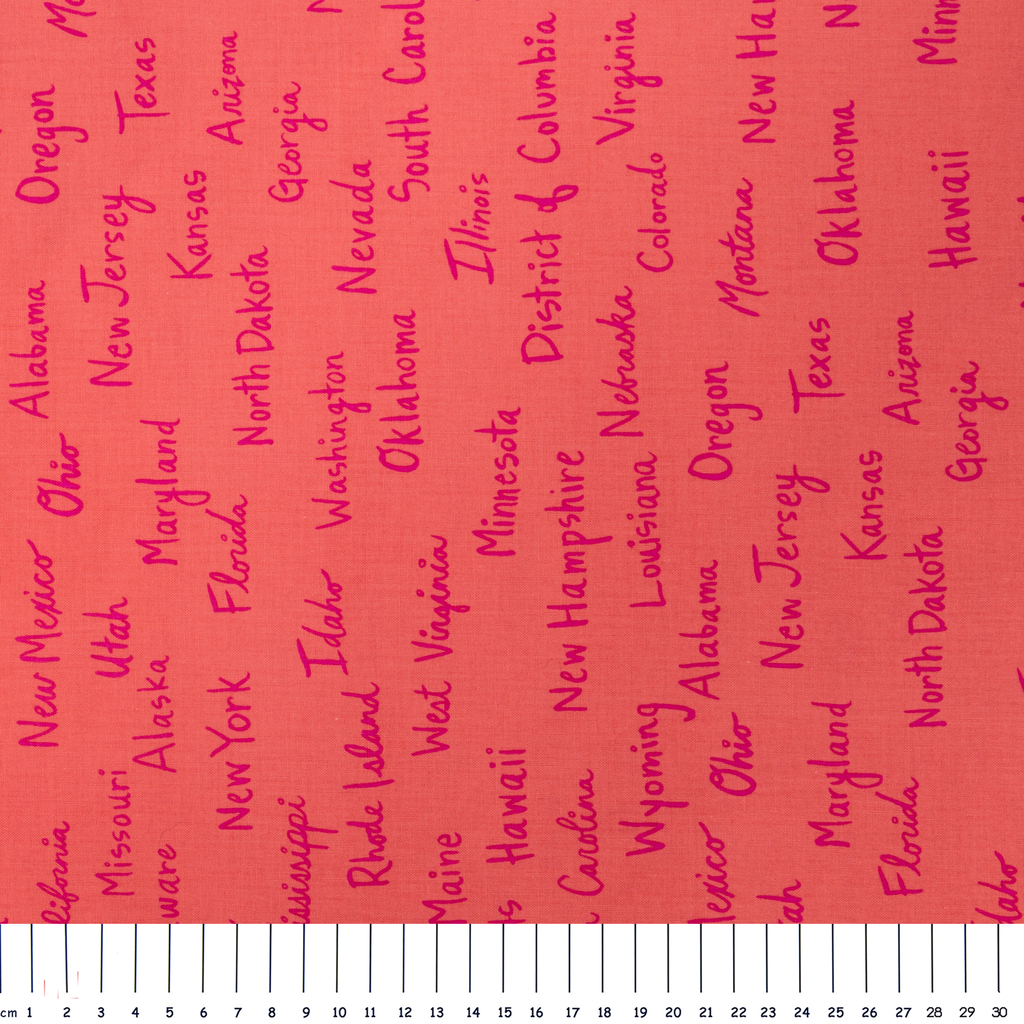 Oregon
Texas
Arizona
Georgia
South Carol
District of Columbia
Virginia
New Ha
Oklahoma
Minn
Alabama
New Jersey
Kansas
North Dakota
Nevada
Illinois
Colorado
Montana
Hawaii
Ohio
Maryland
Washington
Oklahoma
Minnesota
Nebraska
Oregon
Texas
Arizona
Georgia
New Mexico
Utah
Florida
Idaho
West Virginia
New Hampshire
Louisiana
Alabama
New Jersey
Kansas
North Dakota
Missouri
Alaska
New York
Rhode Island
Hawaii
Wyoming
Ohio
Maryland
Florida
lifornia
ware
ississippi
Maine
Carolina
Mexico
tah
daho
cm 1 2 3 4 5 6 7 8 9 10 11 12 13 14 15 16 17 18 19 20 21 22 23 24 25 26 27 28 29 30